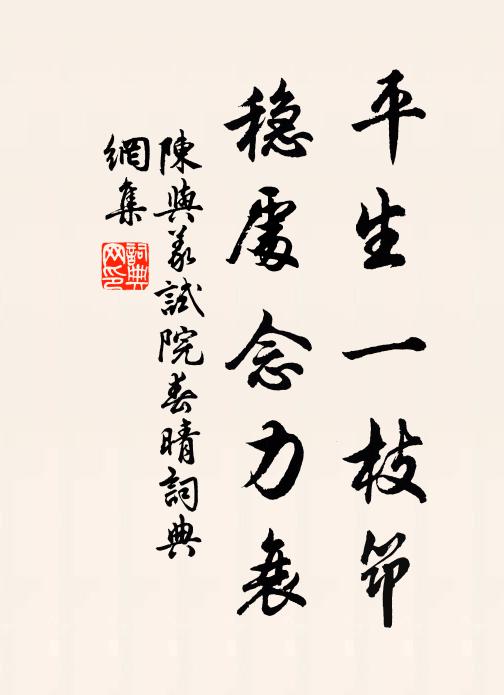 平生一枝筇
稳處念力衰
陳與義試院春晴詞典
網集
詞典
网印